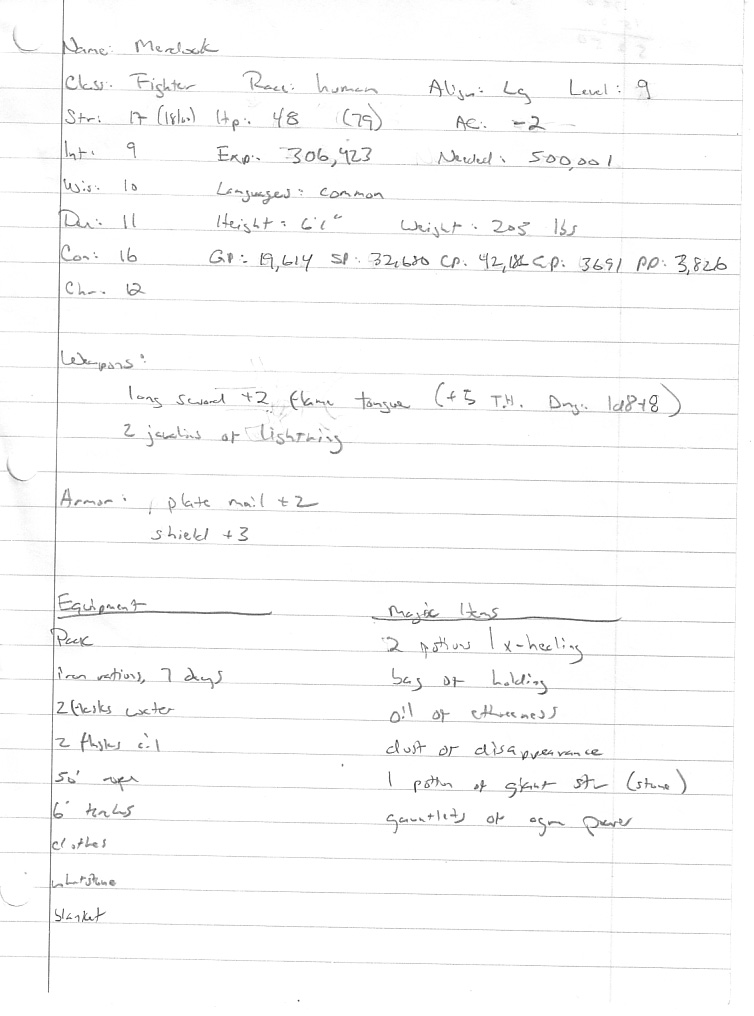 Name: Merclock
Class: Fighter Race: human Align: Lg Level: 9
Str: 17 (18/00) Hp: 48 (79) AC: -2
Int: 9 Exp: 306,423 Needed: 500,001
Wis: 10 Languages: common
Dex: 11 Height: 6'1" Weight: 205 lbs
Con: 16 GP: 19,614 SP: 32,680 CP: EP: 3691 PP: 3,826
Chr: 12
Weapons:
long sword +2, flame tongue (+5 T.H. Dmg: 1d8+8)
2 javelins of lightning
Armor: plate mail +2
shield +3
Equipment Magic Items
Pack 2 potions x-healing
iron rations, 7 days bag of holding
2 flasks water oil of etherealness
2 flasks oil dust of disappearance
50' rope 1 potion of giant str (stone)
6 torches gauntlets of ogre power
clothes
whetstone
blanket